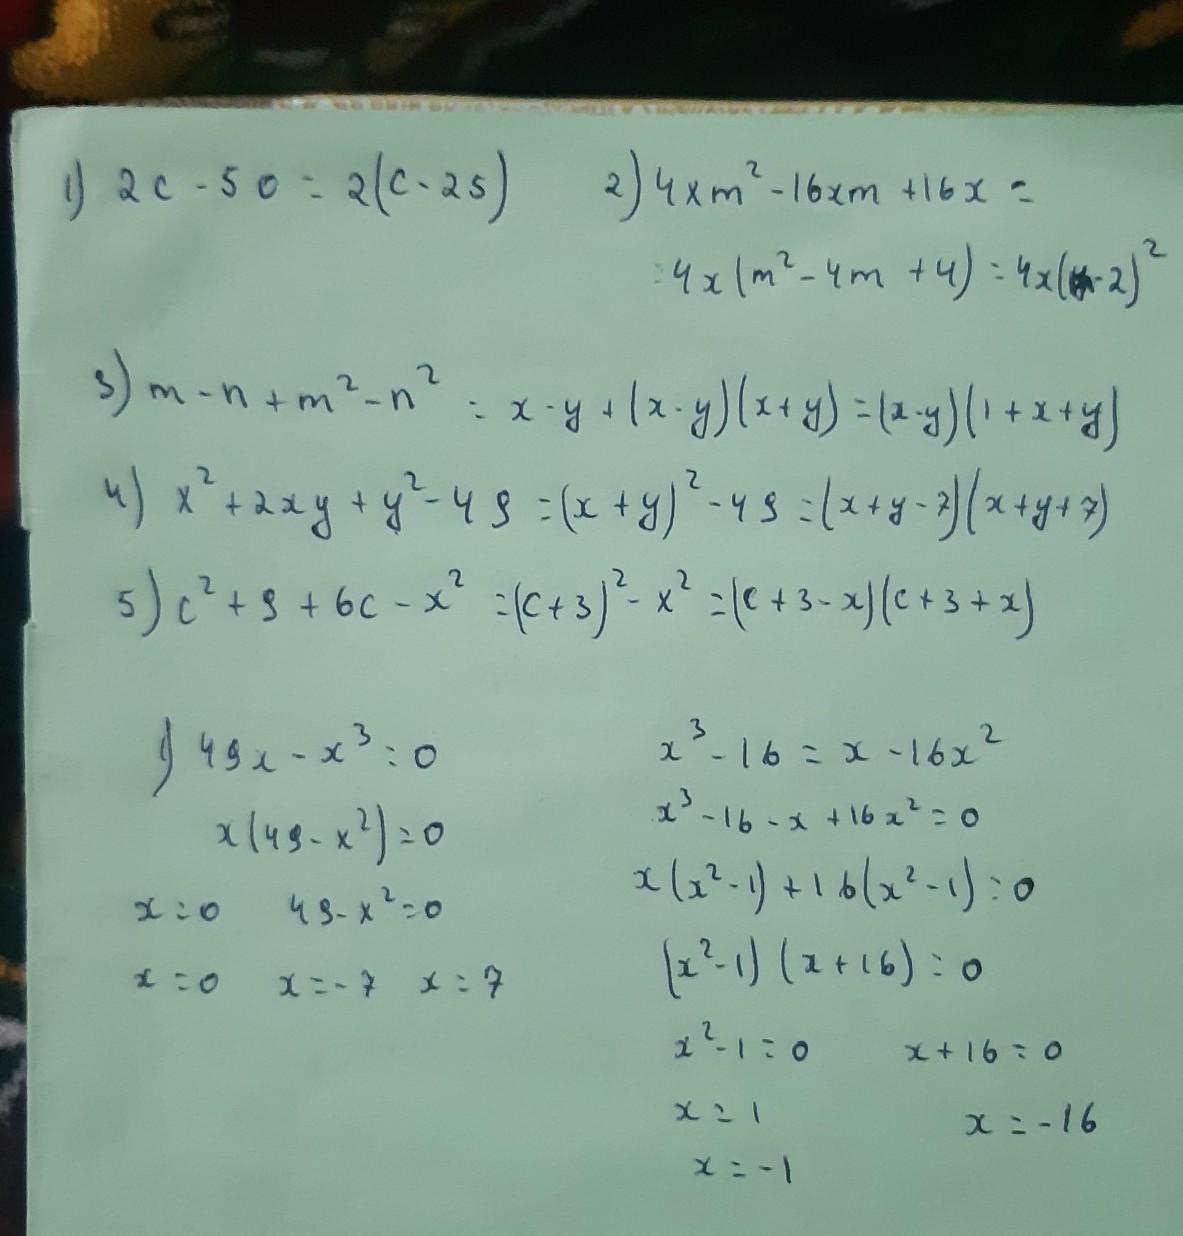 1) 2c - 50 = 2(c - 25)
2) 4xm² - 16xm + 16x =
= 4x(m² - 4m + 4) = 4x(m-2)²
3) m - n + m² - n² = x - y + (x - y)(x + y) = (x - y)(1 + x + y)
4) x² + 2xy + y² - 49 = (x + y)² - 49 = (x + y - 7)(x + y + 7)
5) c² + 9 + 6c - x² = (c + 3)² - x² = (c + 3 - x)(c + 3 + x)
1) 49x - x³ = 0
x(49 - x²) = 0
x = 0 49 - x² = 0
x = 0 x = -7 x = 7
x³ - 16 = x - 16x²
x³ - 16 - x + 16x² = 0
x(x² - 1) + 16(x² - 1) = 0
(x² - 1) (x + 16) = 0
x² - 1 = 0 x + 16 = 0
x = 1 x = -16
x = -1